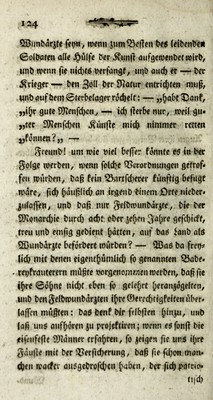 124
Wundärzte seyn, wenn zum Besten des leidenden
Soldaten alle Hülfe der Kunst aufgewendet wird,
und wenn sie nichts verfangt, und auch er — der
Krieger — den Zoll der Natur entrichten muß,
und auf dem Sterbelager röchelt: — „habt Dank,
„ihr gute Menschen, — ich sterbe nur, weil gu-
„ter Menschen Künste mich nimmer retten
„können?„ —
Freund! um wie viel besser könnte es in der
Folge werden, wenn solche Verordnungen getrof-
fen würden, daß kein Bartscherer künftig befugt
wäre, sich häußlich an irgend einem Orte nieder-
zulassen, und daß nur Feldwundärzte, die der
Monarchie durch acht oder zehen Jahre geschickt,
treu und emsig gedient hätten, auf das Land als
Wundärzte befördert würden? — Was da frey-
lich mit denen eigenthümlich so genannten Bade-
reykrauterern müßte vorgenommen werden, daß sie
ihre Söhne nicht eben so gelehrt heranzögelten,
und den Feldwundärzten ihre Gerechtigkeiten über-
lassen müßten: das denk dir selbsten hinzu, und
laß uns aufhören zu projektiren; wenn es sonst die
eisenfeste Männer erfahren, so zeigen sie uns ihre
Fäuste mit der Versicherung, daß sie schon man-
chen wacker ausgedroschen haben, der sich patrio-
tisch